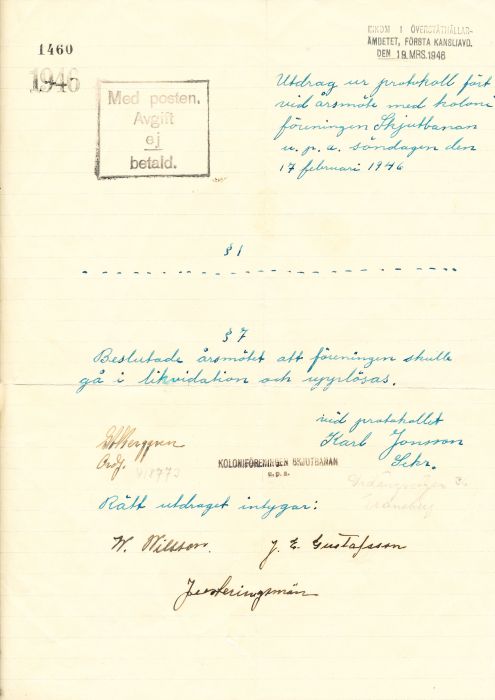 1460
1946
INKOM I ÖVERSTÅTHÅLLAR-
ÄMBETET, FÖRSTA KANSLIAVD.
DEN 19. MRS. 1946
Med posten.
Avgift
ej
betald.
Utdrag ur protokoll fört
vid årsmöte med koloni
föreningen Skjutbanan
u.p.a. söndagen den
17 februari 1946
§ 1
§ 7
Beslutade årsmötet att föreningen skulle
gå i likvidation och upplösas.
vid protokollet
Karl Jonsson
Sekr.
Berggren
Ordf.
KOLONIFÖRENINGEN SKJUTBANAN
u.p.a.
Rätt utdraget intygar:
W. Nilsson.
J. E. Gustafsson
Justeringsmän